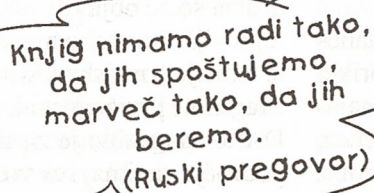 Knjig nimamo radi tako,
da jih spoštujemo,
marveč tako, da jih
beremo.
(Ruski pregovor)